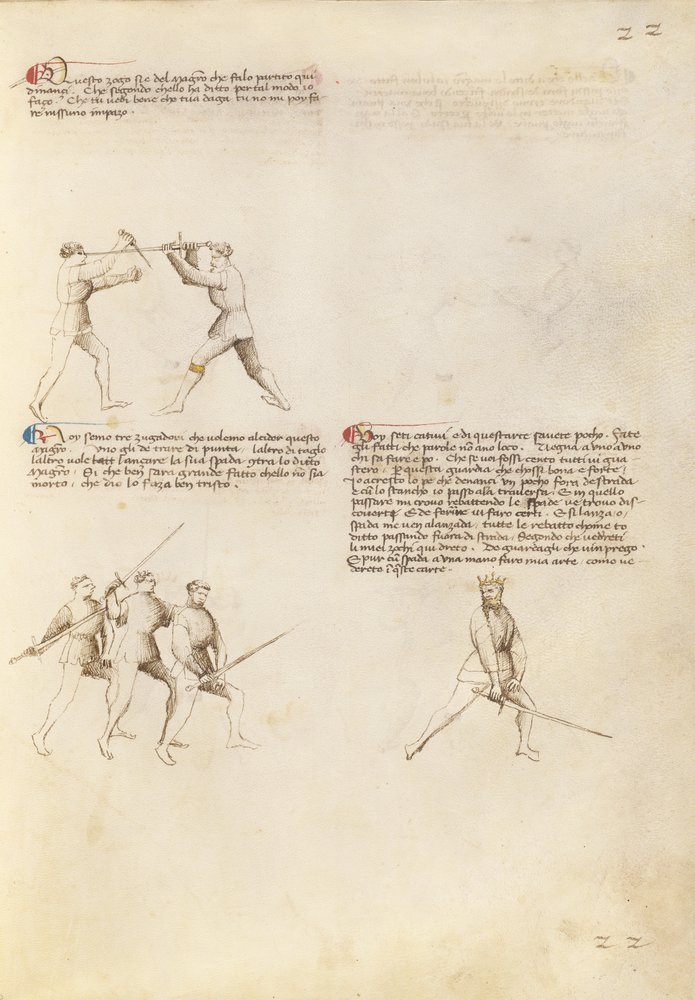 22
Questo zogo sie del Magro che falo partito qui
dinanci. Che segondo chello ha ditto per tal modo io
fazo. Che tu vedi bene che tua daga tu no mi poy fa
re nissuno impazo.
Noy semo tre zugadori che volemo alcider questo
Magro. Uno gli de trare di punta, laltro di taglo
laltro vole lançare la sua spada contra lo ditto
Magro. Si che ben sara grande fatto chello no sia
morto, che dio lo faza ben tristo.
Voy seti cativi e di questarte savete pocho. Fate
gli fatti che parole non ano loco. Vegna a uno a uno
chi sa fare e po. Che se voi fossi cento tutti vi gua
stero, per questa guardia che chossi bona e forte.
Io acresto lo pe che denanci un pocho fora de strada
e cum lo stancho io passo ala traversa. E in quello
passare mi crovo rebattendo le spade ve trovo dis
coverti E de ferire vi faro certi. E si lanza o
spada me ven alanzada, tutte le rebatto chome to
ditto passando fuora di strada, segondo che vedreti
li miei zochi qui dreto. De guardagli che vin prego.
E pur cum spada a una mano faro mia arte, como ve
dereto in queste carte.
22